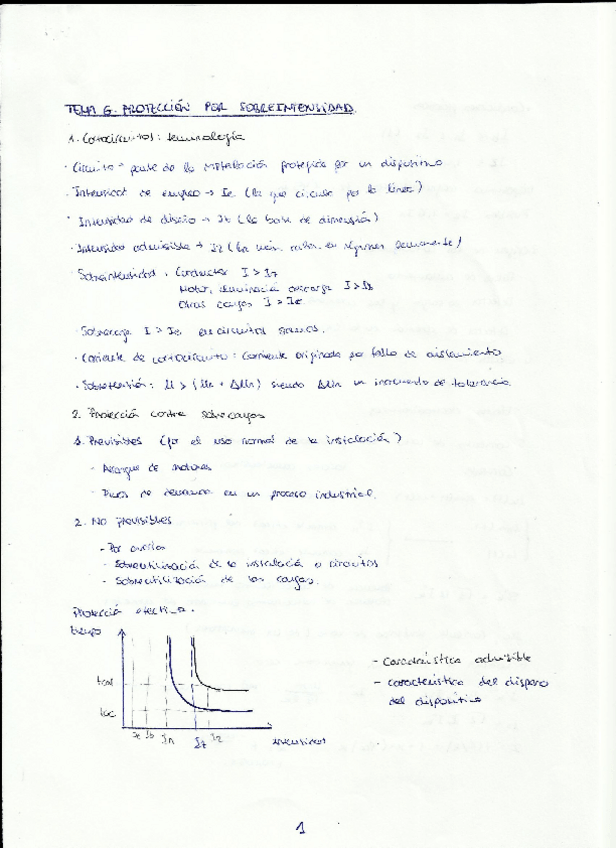 TEMA 6. PROTECCIÓN POR SOBREINTENSIDAD.
1. Cortocircuitos: terminología
· Circuito = parte de la instalación protegida por un dispositivo
· Intensidad de empleo → Ie (la que circula por la línea)
· Intensidad de diseño → Ib (la base de dimensión)
· Intensidad admisible → Iz (la máx. en régimen permanente)
· Sobreintensidad : Conductor I > Iz
Motor, iluminación descarga I > Ib
Otras cargas I > Ie
· Sobrecarga I > Ie en circuitos sanos.
· Corriente de cortocircuito : Corriente originada por fallo de aislamiento
· Sobretensión : U > (Un + ΔUn) siendo ΔUn un incremento de tolerancia.
2. Protección contra sobrecargas
1. Previsibles (por el uso normal de la instalación)
- Arranque de motores
- Picos de demanda en un proceso industrial.
2. No previsibles
- Por avería
- Sobreutilización de la instalació o circuitos
- Sobreutilización de las cargas.
Protecció
tiempo
- Característica admisible
- característica del disparo
del dispositivo
Ie Ib In Iz I2 intensidad
1